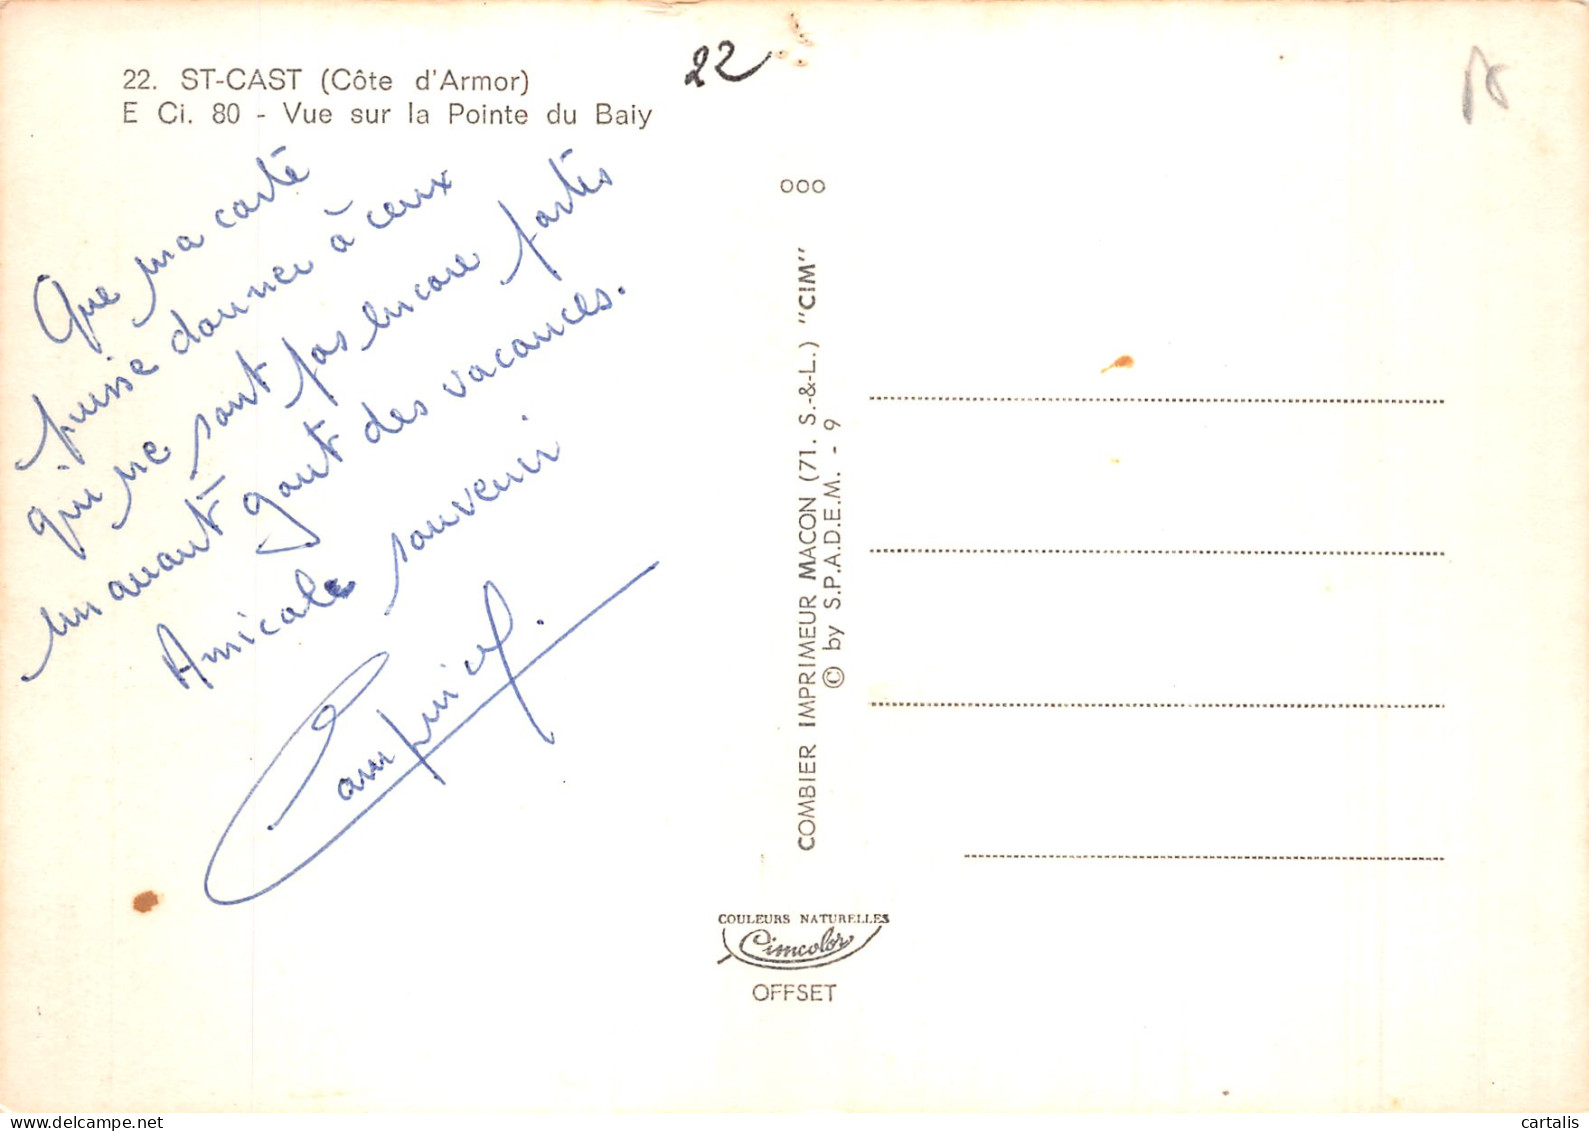 22. ST-CAST (Côte d'Armor)
E Ci. 80 - Vue sur la Pointe du Baiy
22
Que ma carte
puisse donner à ceux
qui ne sont pas encore partis
un avant goût des vacances.
Amicale souvenir
000
COMBIER IMPRIMEUR MACON (71. S.-&-L.) "CIM"
© by S.P.A.D.E.M. - 9
COULEURS NATURELLES
Cimcolor
OFFSET
cartalis